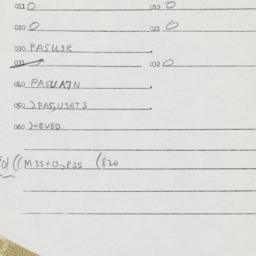 011 0 012 0
020 0 021 0
030 PASU3R
031 032 0
040 PASUA7N
050 )PAS,U3RT3
060 )=EVED
((M35+O,,R35 (820